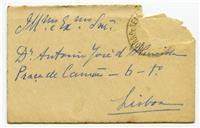 Illmo. e Exmo. Snr.
Dr. Antonio José d'Almeida
Praça de Camões - 6 - 1º
Lisboa